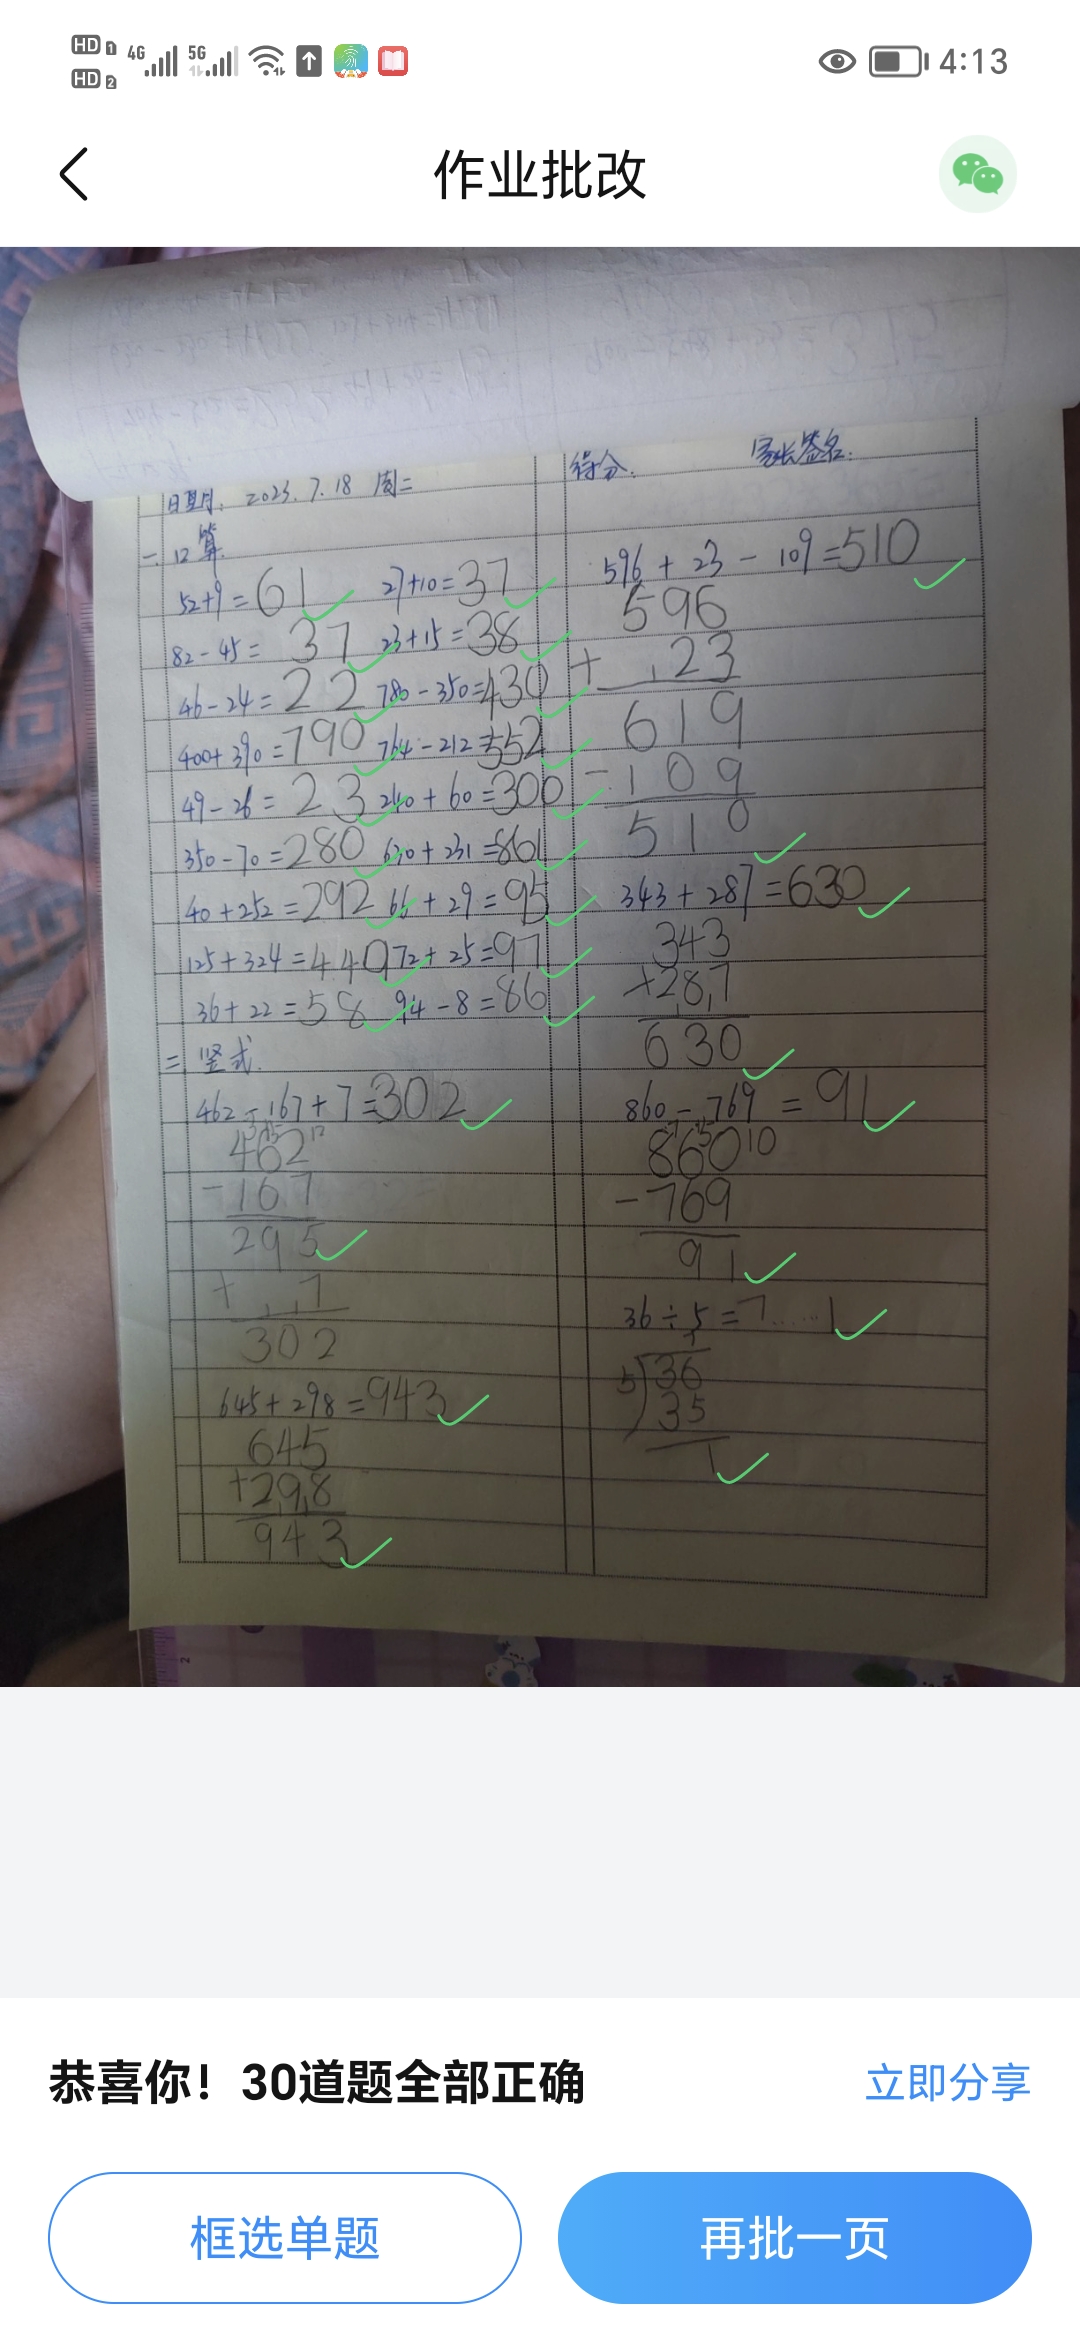 HD 1 4G 5G 4:13
HD 2
作业批改
日期: 2023.7.18 周二
得分. 家长签名.
一. 口算.
52+9=61 27+10=37
82-45=37 23+15=38
46-24=22 780-350=430
400+390=790 764-212=552
49-26=23 240+60=300
350-70=280 630+231=861
40+252=292 66+29=95
125+324=449 72+25=97
36+22=58 94-8=86
二. 竖式.
462-167+7=302
462
-167
295
+7
302
645+298=943
645
+298
943
596+23-109=510
596
+23
619
-109
510
343+287=630
343
+287
630
860-769=91
860 10
-769
91
36÷5=7……1
7
5 36
35
1
恭喜你！30道题全部正确
立即分享
框选单题
再批一页